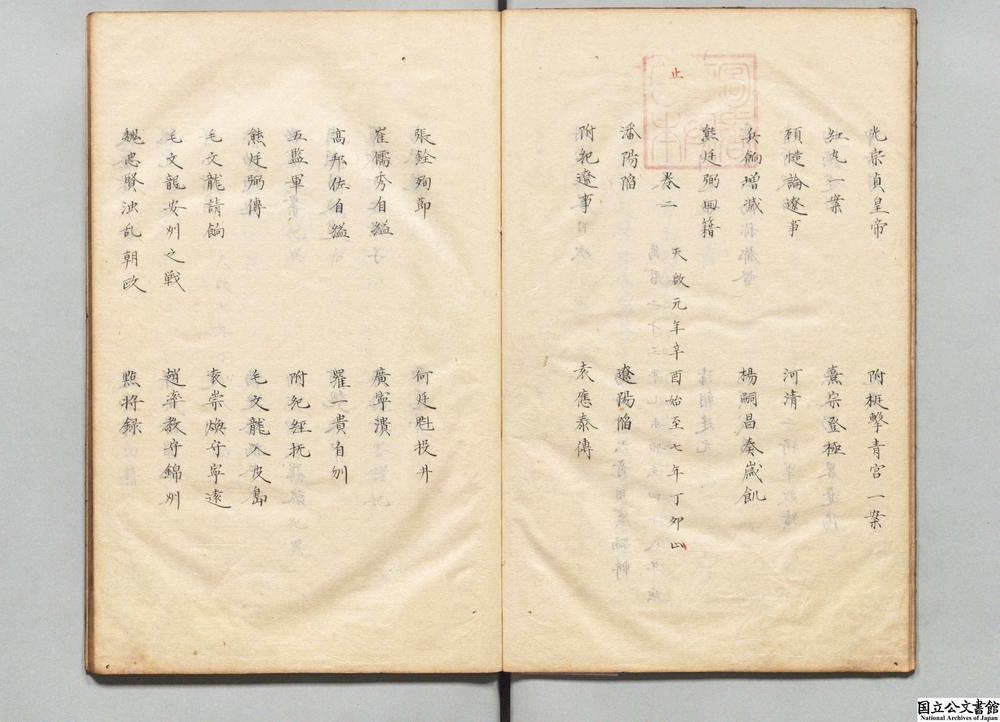 光宗貞皇帝 附梃擊青宮一案
紅丸一案 熹宗登極
顧慥論遼事 河清
兵餉增減 楊嗣昌奏歲飢
熊廷弼回籍
止
卷二 天啟元年辛酉始至七年丁卯止
瀋陽陷 遼陽陷
附紀遼事 袁應泰傳
張銓殉節 何廷魁投井
崔儒秀自縊 廣寧潰
高邦佐自縊 羅一貴自刎
五監軍 附紀經抚
熊廷弼傳 毛文龍入皮島
毛文龍請餉 袁崇煥守寧遠
毛文龍安州之戰 趙率教守錦州
魏忠賢浊乱朝政 點將錄
国立公文書館
National Archives of Japan